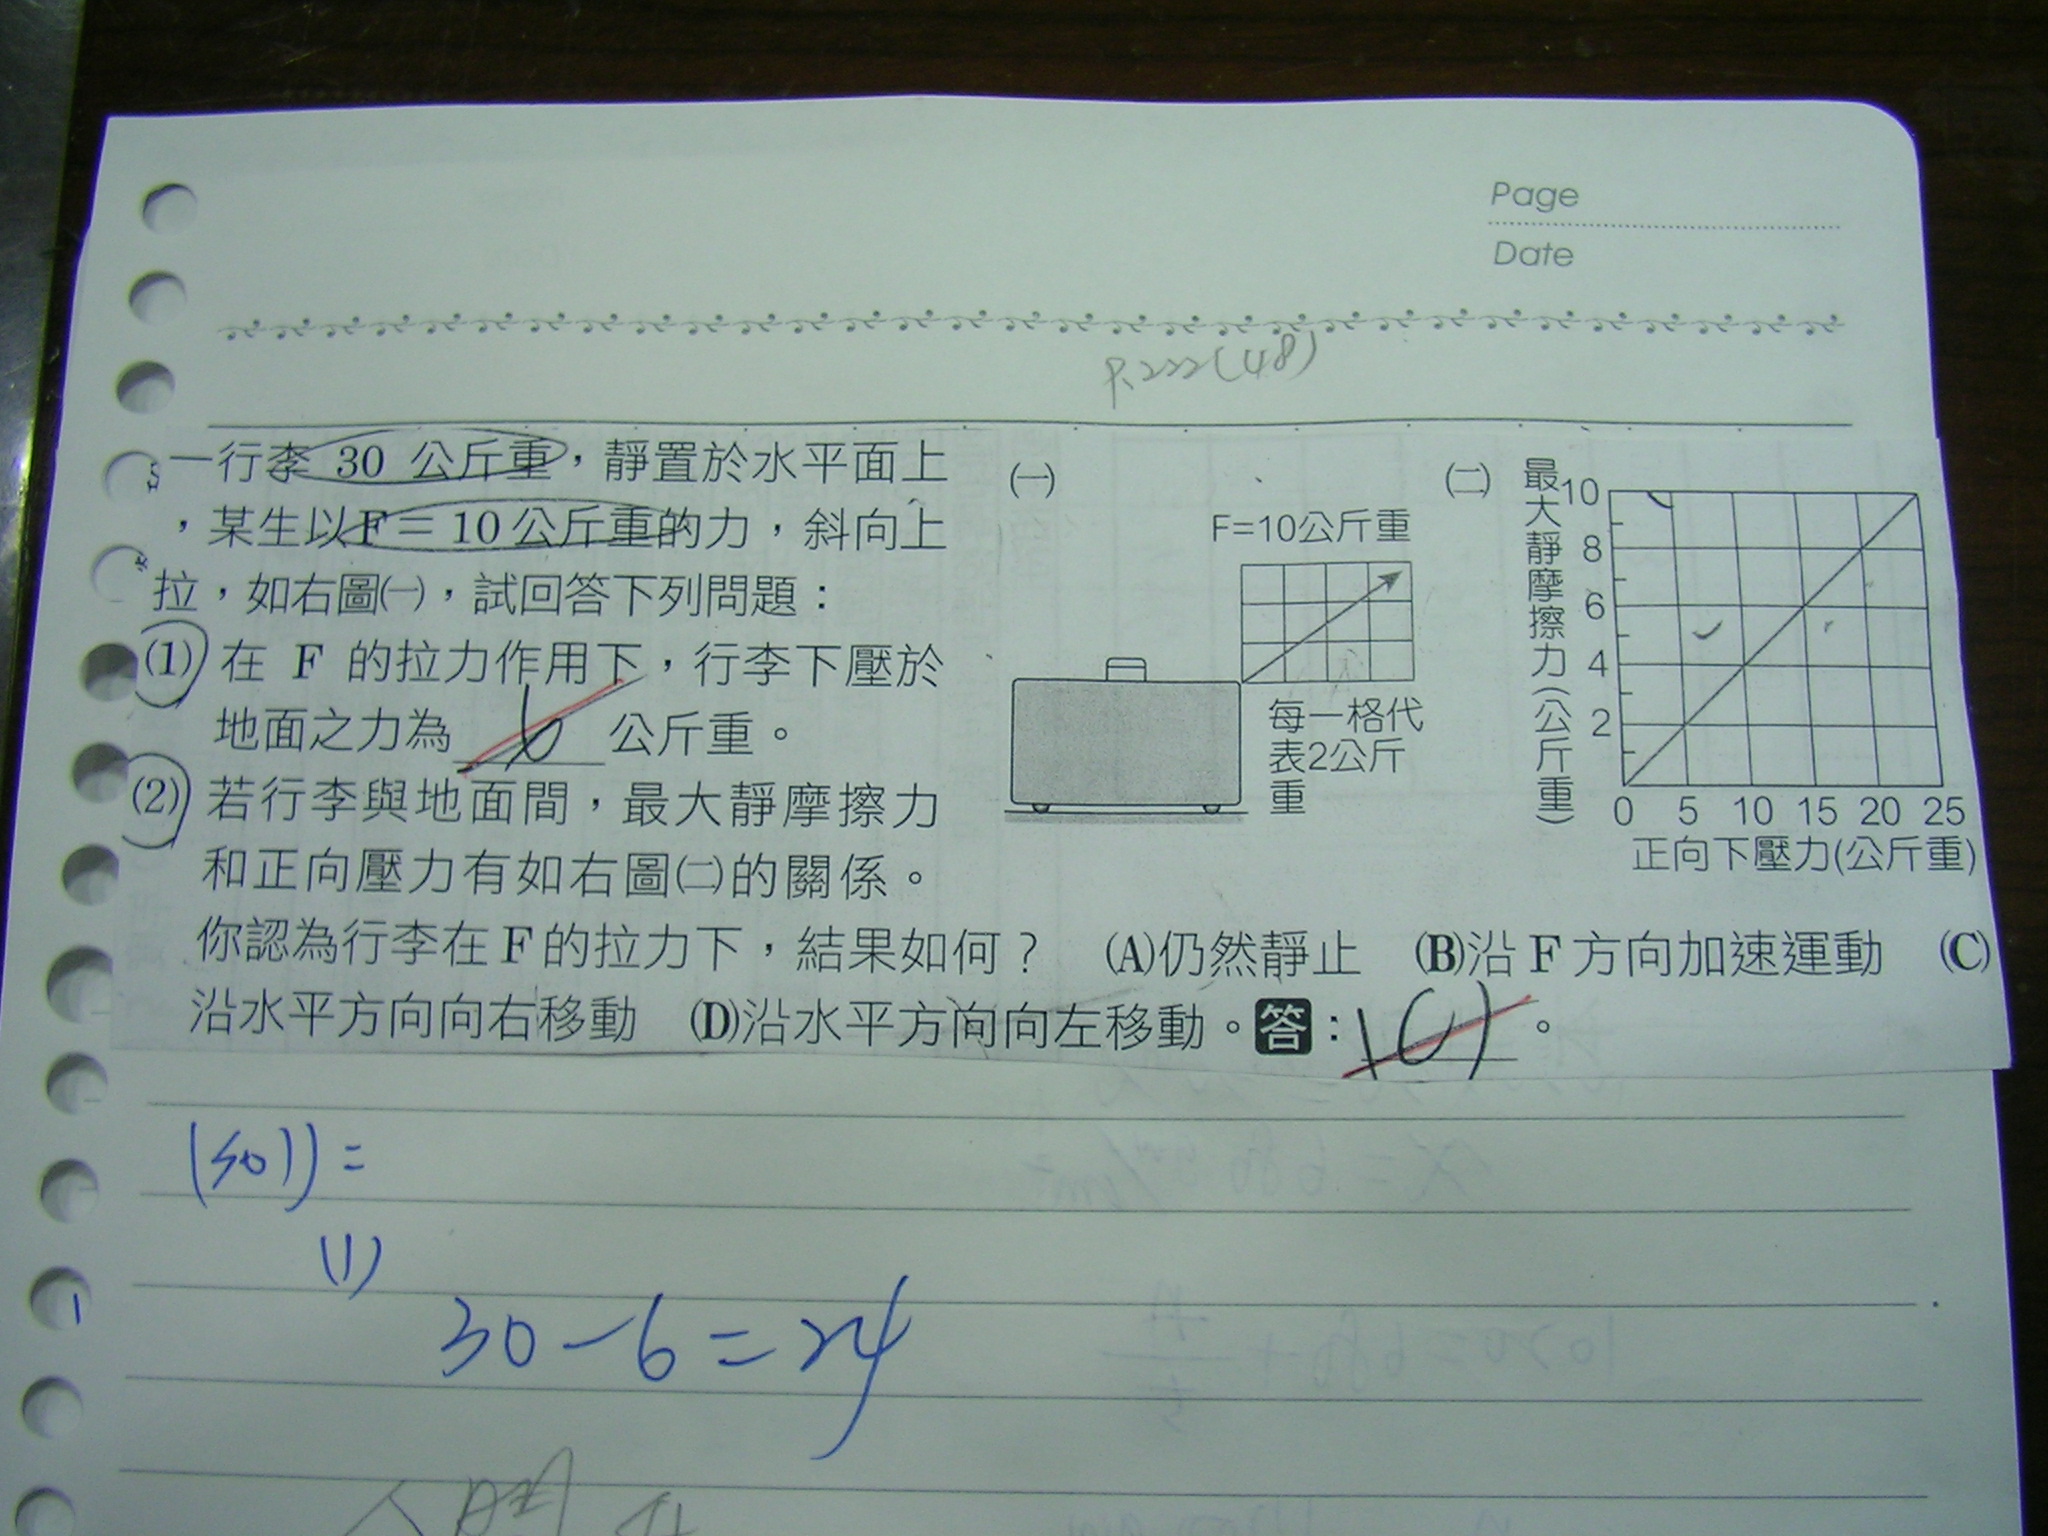 Page
Date
P.222(48)
一行李 30 公斤重，靜置於水平面上
，某生以F＝10公斤重的力，斜向上
拉，如右圖㈠，試回答下列問題：
(1) 在 F 的拉力作用下，行李下壓於
地面之力為 6 公斤重。
(2) 若行李與地面間，最大靜摩擦力
和正向壓力有如右圖㈡的關係。
你認為行李在F的拉力下，結果如何？ (A)仍然靜止 (B)沿F方向加速運動 (C)
沿水平方向向右移動 (D)沿水平方向向左移動。答：(C)。
㈠
F=10公斤重
每一格代
表2公斤
重
㈡
最大靜摩擦力(公斤重)
10
8
6
4
2
0 5 10 15 20 25
正向下壓力(公斤重)
(sol)=
(1)
30-6=24